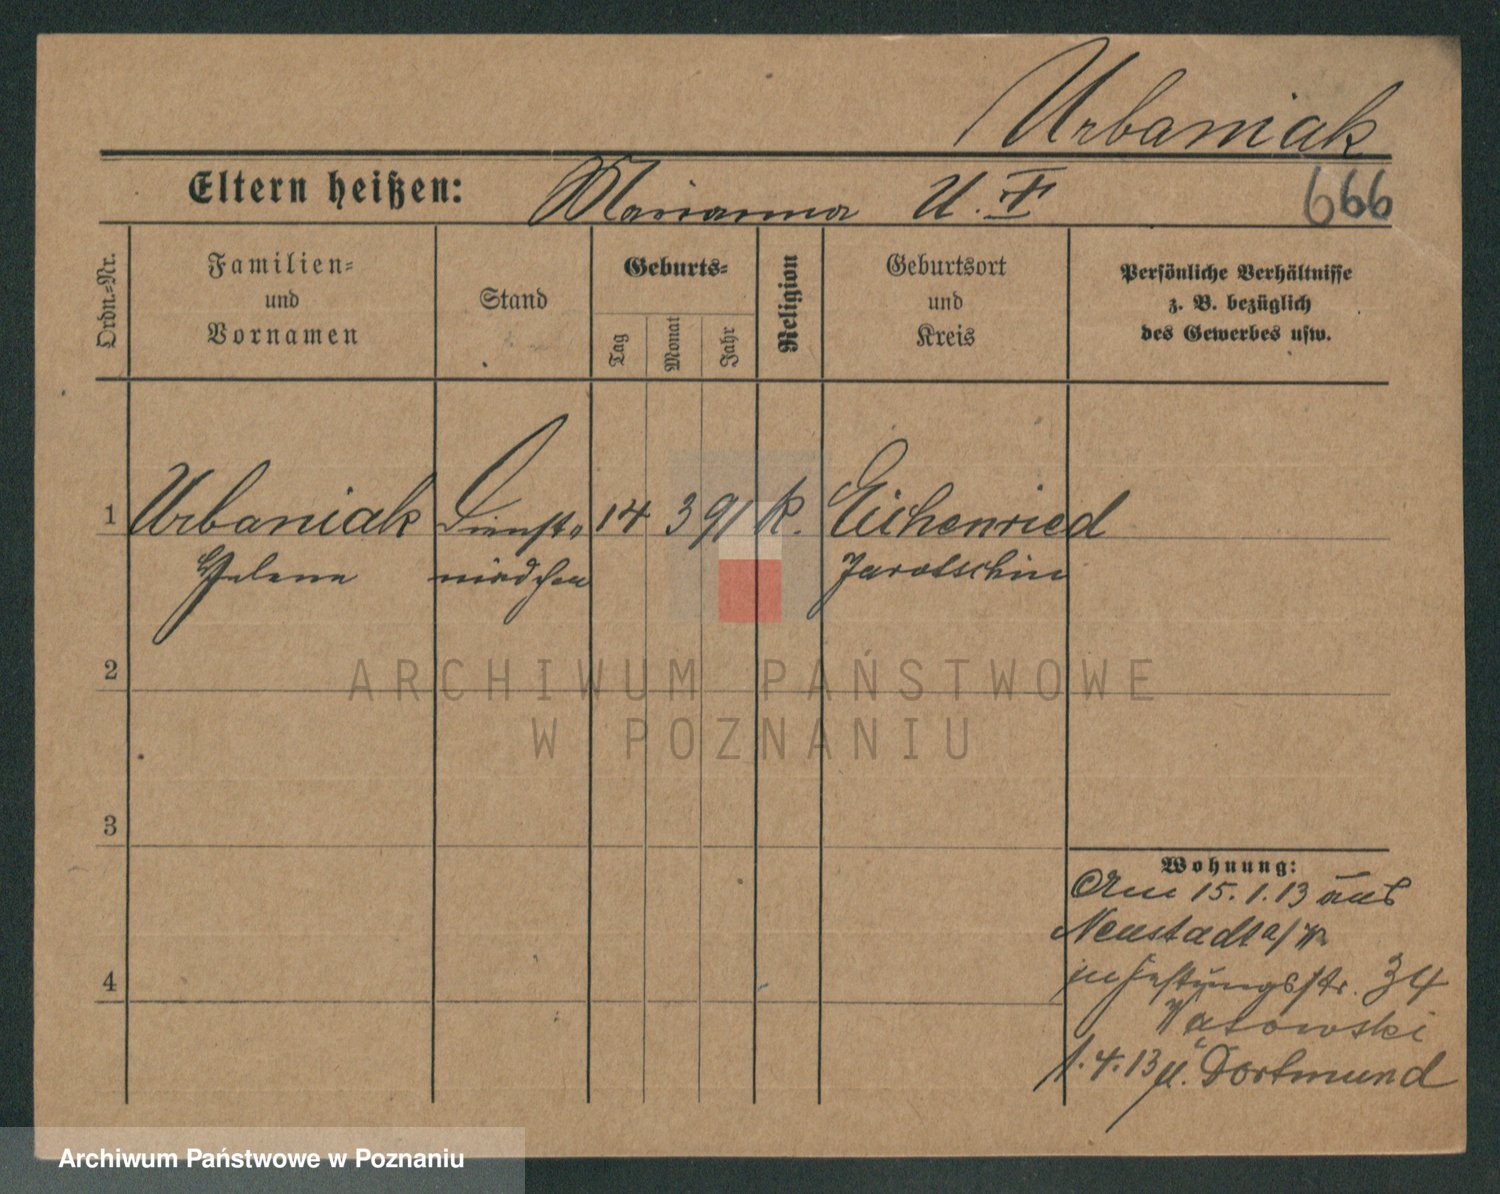 Urbaniak
Eltern heißen: Marianna U.
666
Ordn.-Nr.
Familien-
und
Vornamen
Stand
Geburts-
Tag
Monat
Jahr
Religion
Geburtsort
und
Kreis
Persönliche Verhältnisse
z. B. bezüglich
des Gewerbes usw.
1 Urbaniak Dienst- 14 3 91 k. Eichenried
Helene mädchen Jarotschin
2
ARCHIWUM PAŃSTWOWE
W POZNANIU
3
Wohnung:
Am 15.1.13 aus
Neustadt a/W
in Festungsstr. 34
4
1.4.13 n. Dortmund
Archiwum Państwowe w Poznaniu